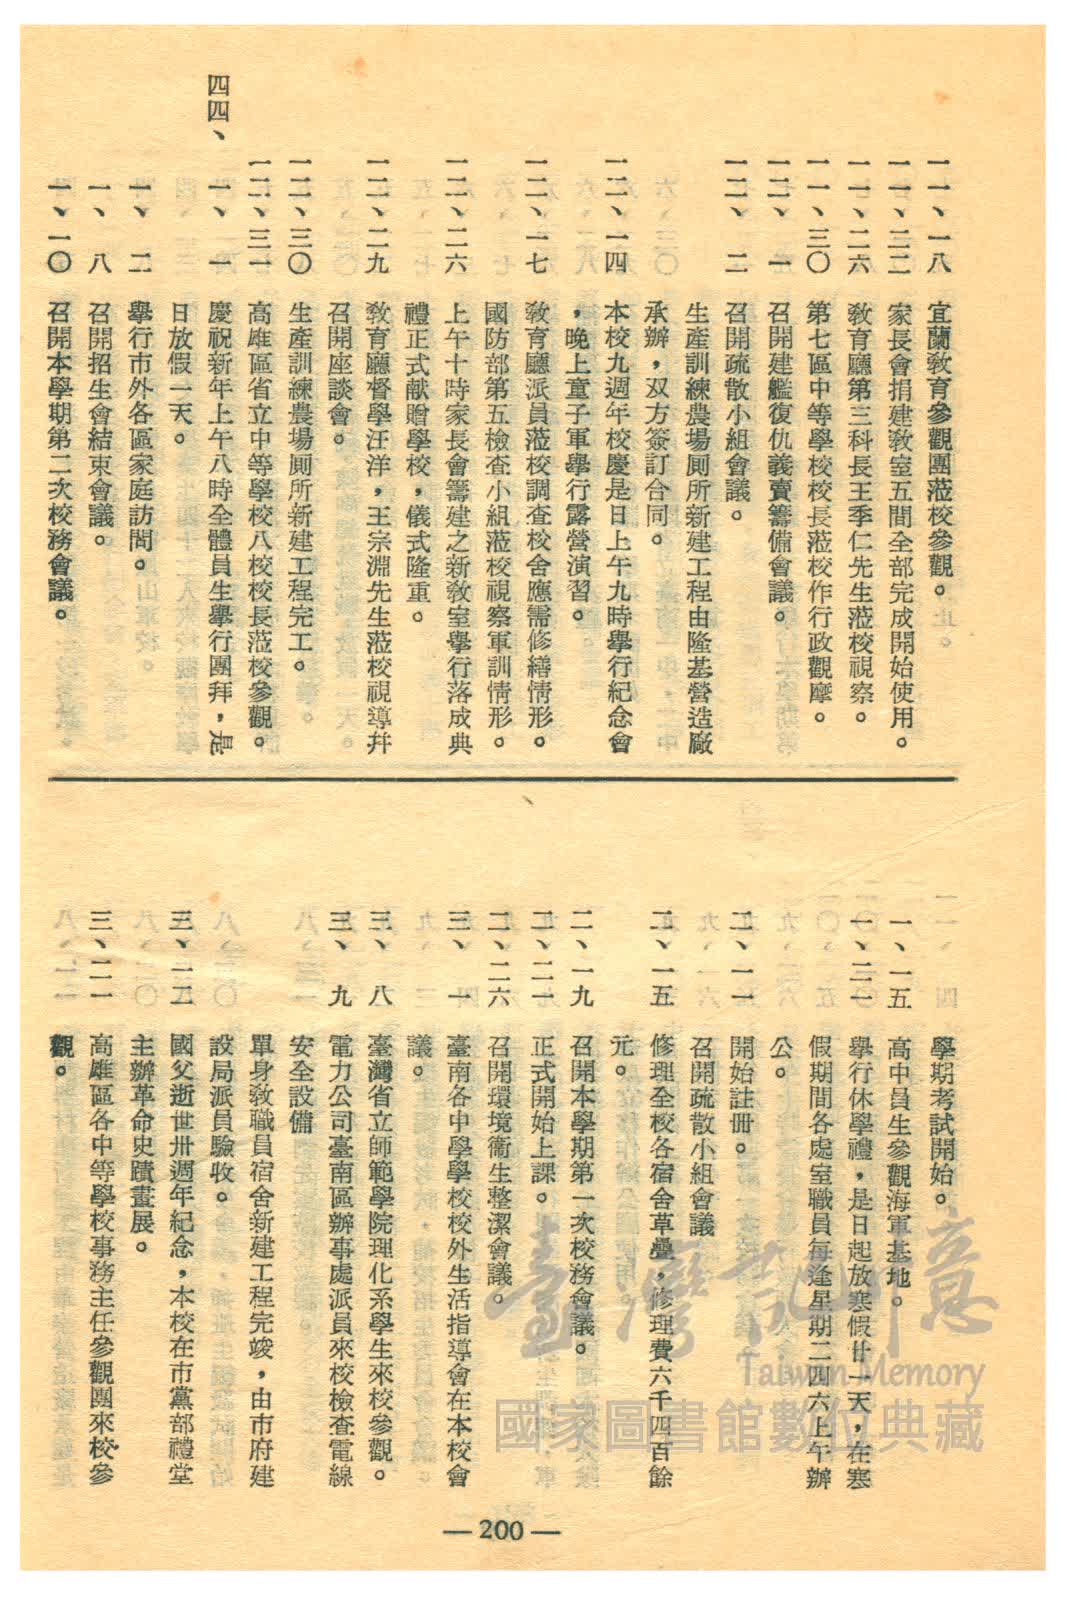 一一、一八 宜蘭教育參觀團蒞校參觀。
一一、二二 家長會捐建教室五間全部完成開始使用。
一一、二六 教育廳第三科長王季仁先生蒞校視察。
一一、三〇 第七區中等學校校長蒞校作行政觀摩。
一二、一 召開建艦復仇義賣籌備會議。
一二、二 召開疏散小組會議。
生產訓練農場厠所新建工程由隆基營造廠
承辦，双方簽訂合同。
一二、一四 本校九週年校慶是日上午九時舉行紀念會
，晚上童子軍舉行露營演習。
一二、一七 教育廳派員蒞校調查校舍應需修繕情形。
國防部第五檢查小組蒞校視察軍訓情形。
一二、二六 上午十時家長會籌建之新教室舉行落成典
禮正式献贈學校，儀式隆重。
一二、二九 教育廳督學汪洋，王宗淵先生蒞校視導幷
召開座談會。
一二、三〇 生產訓練農場厠所新建工程完工。
一二、三一 高雄區省立中等學校八校校長蒞校參觀。
四四、 一、一 慶祝新年上午八時全體員生舉行團拜，是
日放假二天。
一、二 舉行市外各區家庭訪問。
一、八 召開招生會結束會議。
一、一〇 召開本學期第二次校務會議。
學期考試開始。
一、一五 高中員生參觀海軍基地。
一、二一 舉行休學禮，是日起放寒假廿一天，在寒
假期間各處室職員每逢星期二四六上午辦
公。
二、一一 開始註冊。
召開疏散小組會議
二、一五 修理全校各宿舍草疊，修理費六千四百餘
元。
二、一九 召開本學期第一次校務會議。
二、二一 正式開始上課。
二、二六 召開環境衞生整潔會議。
三、一 臺南各中學學校校外生活指導會在本校會
議。
三、八 臺灣省立師範學院理化系學生來校參觀。
三、九 電力公司臺南區辦事處派員來校檢查電線
安全設備
單身教職員宿舍新建工程完竣，由市府建
設局派員驗收。
三、一二 國父逝世卅週年紀念，本校在市黨部禮堂
主辦革命史蹟畫展。
三、二一 高雄區各中等學校事務主任參觀團來校參
觀。
臺灣記憶
Taiwan Memory
國家圖書館數位典藏
—200—